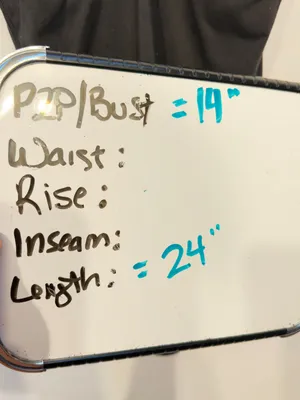 P2P/Bust = 19"
Waist:
Rise:
Inseam:
Length: = 24"